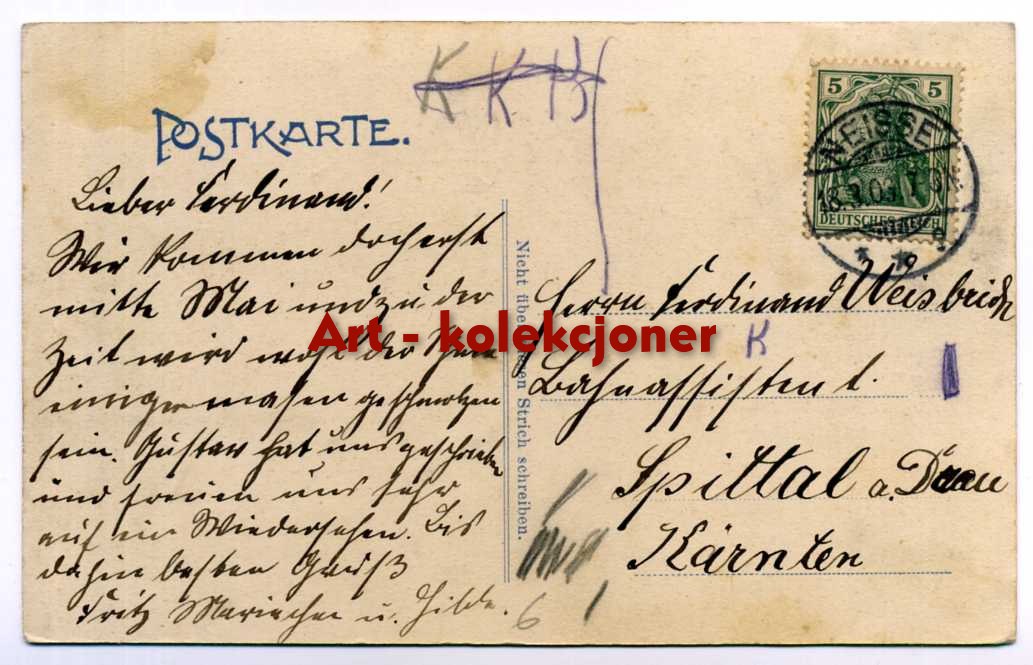 K K B
POSTKARTE.
5 5
NEISSE
DEUTSCHES REICH
Lieber Ferdinand!
Wir kommen doch erst
mitte Mai und zu der
Zeit wird wohl der Schnee
einigermasen geschmolzen
sein. Gustav hat uns geschrieben
und freuen uns sehr
auf ein Wiedersehen. Bis
dahin besten Gruß
Fritz Mariechen u. Hilde.
Nicht über diesen Strich schreiben.
Herrn Ferdinand Weisbrich
K
Bahnassistent.
Spittal a. Drau
Kärnten
6
Art - kolekcjoner